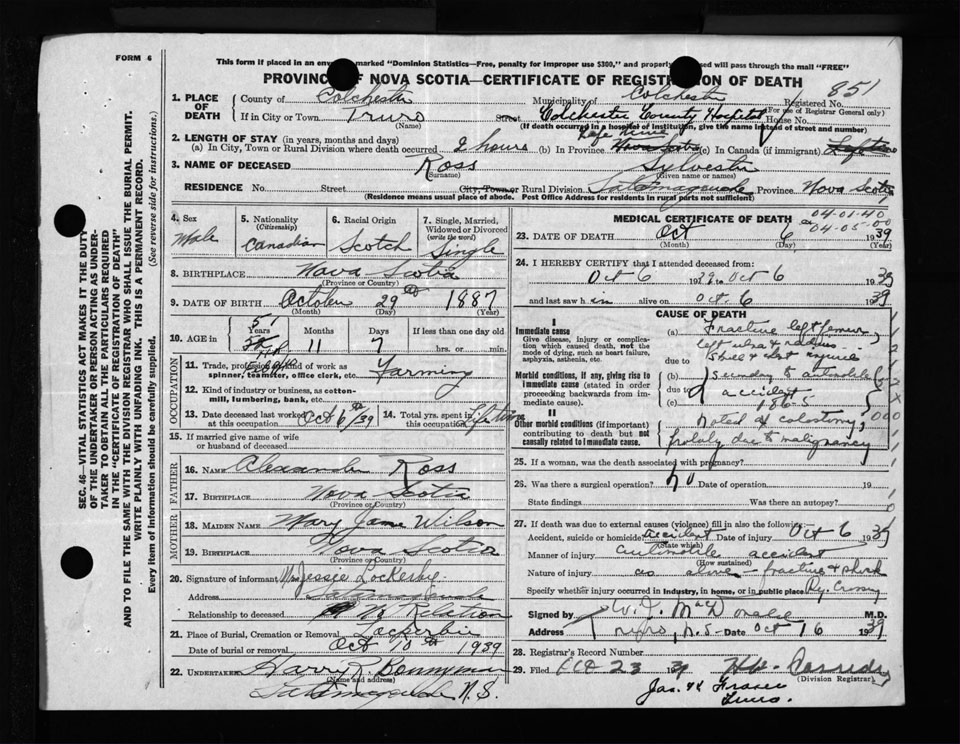 FORM 6
This form if placed in an envelope marked "Dominion Statistics—Free, penalty for improper use $300," and properly addressed will pass through the mail "FREE"
PROVINCE OF NOVA SCOTIA—CERTIFICATE OF REGISTRATION OF DEATH
851
1. PLACE OF DEATH County of Colchester Municipality of Colchester Registered No.
(For use of Registrar General only)
If in City or Town Truro Street Colchester County Hospital House No.
(Name) (If death occurred in a hospital of institution, give the name instead of street and number)
2. LENGTH OF STAY (in years, months and days) Life time
(a) In City, Town or Rural Division where death occurred 2 hours (b) In Province Nova Scotia (c) In Canada (if immigrant) Lifetime
3. NAME OF DECEASED Ross Sylvester
(Surname) (Given name or names)
RESIDENCE No. Street City, Town or Rural Division Tatamagouche Province Nova Scotia
(Residence means usual place of abode. Post Office Address for residents in rural parts not sufficient)
4. Sex Male
5. Nationality (Citizenship) Canadian
6. Racial Origin Scotch
7. Single, Married, Widowed or Divorced (write the word) Single
8. BIRTHPLACE Nova Scotia
(Province or Country)
9. DATE OF BIRTH October 29 1887
(Month) (Day) (Year)
10. AGE in 51 Years 11 Months 7 Days If less than one day old
hrs. or min.
OCCUPATION
11. Trade, profession or kind of work as spinner, teamster, office clerk, etc. Farming
12. Kind of industry or business, as cotton-mill, lumbering, bank, etc.
13. Date deceased last worked at this occupation Oct 6/39
14. Total yrs. spent in this occupation Lifetime
15. If married give name of wife or husband of deceased
FATHER
16. NAME Alexander Ross
17. BIRTHPLACE Nova Scotia
(Province or Country)
MOTHER
18. MAIDEN NAME Mary Jane Wilson
19. BIRTHPLACE Nova Scotia
(Province or Country)
20. Signature of informant Mrs Jessie Lockerbie
Address Tatamagouche
Relationship to deceased No Relation
21. Place of Burial, Cremation or Removal Lockerbie
Date of burial or removal Oct 10 1939
22. UNDERTAKER Harry R. Bonnyman
(Name and address)
Tatamagouche N.S.
MEDICAL CERTIFICATE OF DEATH
04-01-40
04-05-00
23. DATE OF DEATH Oct 6 1939
(Month) (Day) (Year)
24. I HEREBY CERTIFY that I attended deceased from:
Oct 6 1939 to Oct 6 1939
and last saw him alive on Oct 6 1939
CAUSE OF DEATH
I
Immediate cause
Give disease, injury or complication which caused death, not the mode of dying, such as heart failure, asphyxia, asthenia, etc.
(a) Fracture left femur,
left ulna & radius
due to
Morbid conditions, if any, giving rise to immediate cause (stated in order proceeding backwards from immediate cause).
(b) Secondary to automobile
due to accident
(c) 1865
II
Other morbid conditions (if important) contributing to death but not causally related to immediate cause.
Noted a colostomy,
probably due to malignancy
25. If a woman, was the death associated with pregnancy?
26. Was there a surgical operation? No Date of operation 19
State findings Was there an autopsy?
27. If death was due to external causes (violence) fill in also the following:
Accident, suicide or homicide? accident Date of injury Oct 6 1939
(State which)
Manner of injury automobile accident
(How sustained)
Nature of injury as above — fracture & shock
Specify whether injury occurred in industry, in home, or in public place Ry. Crossing
Signed by M.D.
Address Truro, N.S. Date Oct 16 1939
28. Registrar's Record Number
29. Filed 23 39
(Division Registrar)
Truro.
SEC. 46—VITAL STATISTICS ACT MAKES IT THE DUTY
OF THE UNDERTAKER OR PERSON ACTING AS UNDER-
TAKER TO OBTAIN ALL THE PARTICULARS REQUIRED
IN THE "CERTIFICATE OF REGISTRATION OF DEATH"
AND TO FILE THE SAME WITH THE DIVISION REGISTRAR WHO SHALL ISSUE THE BURIAL PERMIT.
WRITE PLAINLY WITH UNFADING INK. THIS IS A PERMANENT RECORD.
Every item of Information should be carefully supplied. (See reverse side for instructions.)